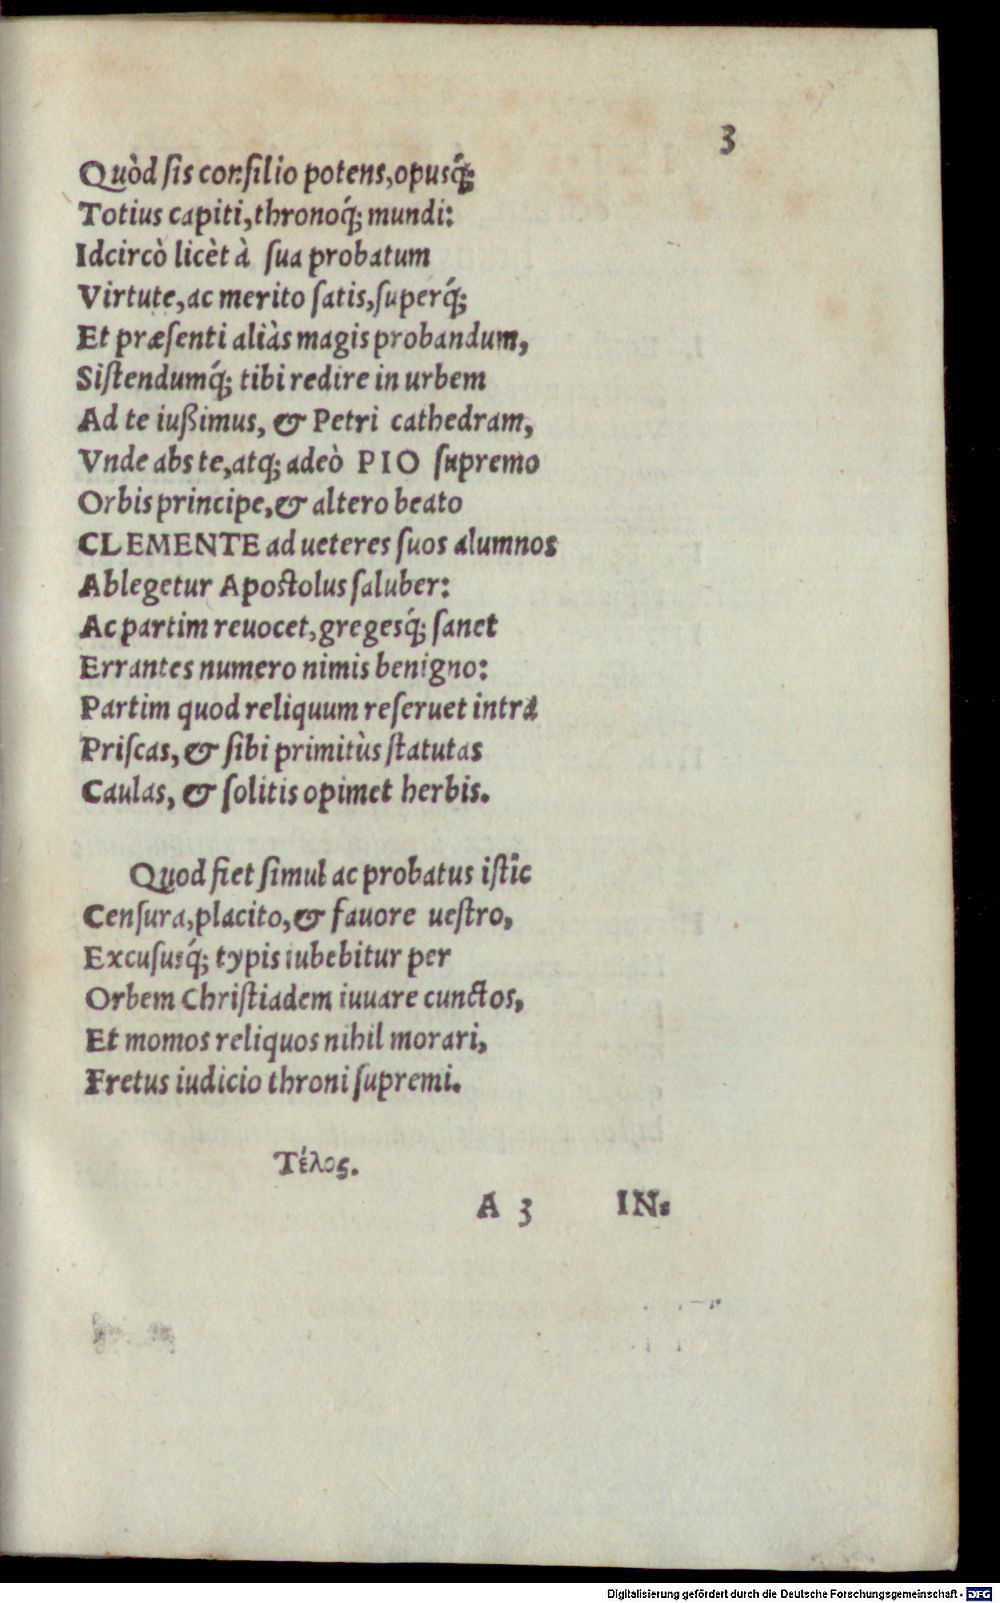 3
Quòd sis consilio potens, opusq́;
Totius capiti, thronoq́; mundi:
Idcircò licèt à sua probatum
Virtute, ac merito satis, superq́;
Et præsenti aliàs magis probandum,
Sistendumq́; tibi redire in urbem
Ad te iußimus, & Petri cathedram,
Vnde abs te, atq; adeò PIO supremo
Orbis principe, & altero beato
CLEMENTE ad ueteres suos alumnos
Ablegetur Apostolus saluber:
Ac partim reuocet, gregesq́; sanet
Errantes numero nimis benigno:
Partim quod reliquum reseruet intra
Priscas, & sibi primitùs statutas
Caulas, & solitis opimet herbis.
Quod fiet simul ac probatus istîc
Censura, placito, & fauore uestro,
Excususq́; typis iubebitur per
Orbem Christiadem iuuare cunctos,
Et momos reliquos nihil morari,
Fretus iudicio throni supremi.
Τέλος.
A 3 IN-
Digitalisierung gefördert durch die Deutsche Forschungsgemeinschaft - DFG